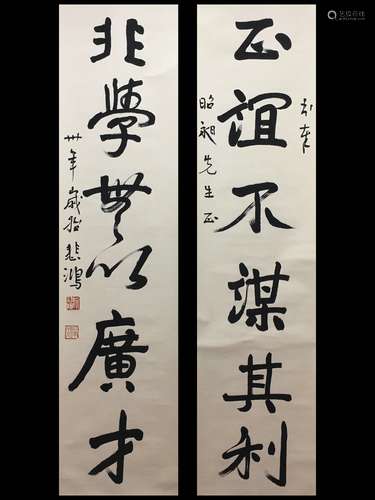 正誼不謀其利
昭昶先生正
非學無以廣才
卅年歲始悲鴻